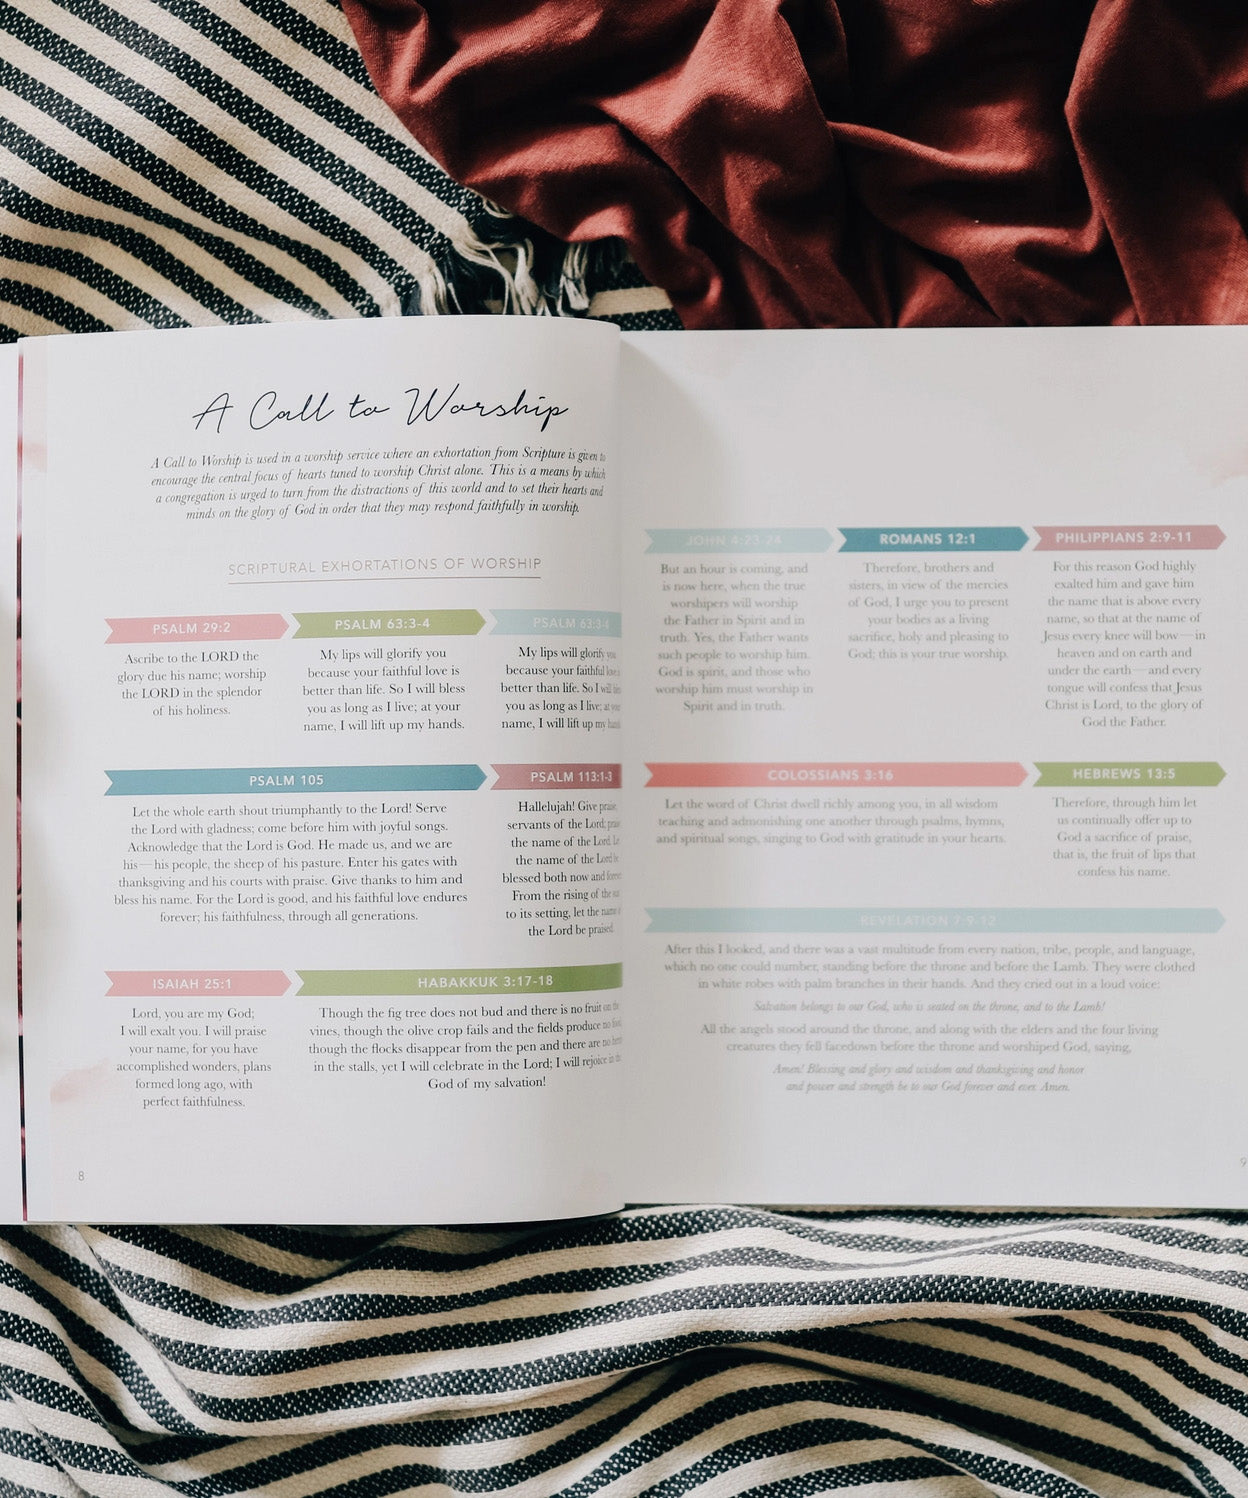 A Call to Worship
A Call to Worship is used in a worship service where an exhortation from Scripture is given to
encourage the central focus of hearts tuned to worship Christ alone. This is a means by which
a congregation is urged to turn from the distractions of this world and to set their hearts and
minds on the glory of God in order that they may respond faithfully in worship.
SCRIPTURAL EXHORTATIONS OF WORSHIP
PSALM 29:2
Ascribe to the LORD the
glory due his name; worship
the LORD in the splendor
of his holiness.
PSALM 63:3-4
My lips will glorify you
because your faithful love is
better than life. So I will bless
you as long as I live; at your
name, I will lift up my hands.
PSALM 63:3-4
My lips will glorify you
because your faithful love is
better than life. So I will bless
you as long as I live; at your
name, I will lift up my hands
PSALM 105
Let the whole earth shout triumphantly to the Lord! Serve
the Lord with gladness; come before him with joyful songs.
Acknowledge that the Lord is God. He made us, and we are
his—his people, the sheep of his pasture. Enter his gates with
thanksgiving and his courts with praise. Give thanks to him and
bless his name. For the Lord is good, and his faithful love endures
forever; his faithfulness, through all generations.
PSALM 113:1-3
Hallelujah! Give praise,
servants of the Lord; praise
the name of the Lord. Let
the name of the Lord be
blessed both now and forever.
From the rising of the sun
to its setting, let the name of
the Lord be praised.
ISAIAH 25:1
Lord, you are my God;
I will exalt you. I will praise
your name, for you have
accomplished wonders, plans
formed long ago, with
perfect faithfulness.
HABAKKUK 3:17-18
Though the fig tree does not bud and there is no fruit on the
vines, though the olive crop fails and the fields produce no food,
though the flocks disappear from the pen and there are no herds
in the stalls, yet I will celebrate in the Lord; I will rejoice in the
God of my salvation!
8
JOHN 4:23-24
But an hour is coming, and
is now here, when the true
worshipers will worship
the Father in Spirit and in
truth. Yes, the Father wants
such people to worship him.
God is spirit, and those who
worship him must worship in
Spirit and in truth.
ROMANS 12:1
Therefore, brothers and
sisters, in view of the mercies
of God, I urge you to present
your bodies as a living
sacrifice, holy and pleasing to
God; this is your true worship.
PHILIPPIANS 2:9-11
For this reason God highly
exalted him and gave him
the name that is above every
name, so that at the name of
Jesus every knee will bow—in
heaven and on earth and
under the earth—and every
tongue will confess that Jesus
Christ is Lord, to the glory of
God the Father.
COLOSSIANS 3:16
Let the word of Christ dwell richly among you, in all wisdom
teaching and admonishing one another through psalms, hymns,
and spiritual songs, singing to God with gratitude in your hearts.
HEBREWS 13:5
Therefore, through him let
us continually offer up to
God a sacrifice of praise,
that is, the fruit of lips that
confess his name.
REVELATION 7:9-12
After this I looked, and there was a vast multitude from every nation, tribe, people, and language,
which no one could number, standing before the throne and before the Lamb. They were clothed
in white robes with palm branches in their hands. And they cried out in a loud voice:
Salvation belongs to our God, who is seated on the throne, and to the Lamb!
All the angels stood around the throne, and along with the elders and the four living
creatures they fell facedown before the throne and worshiped God, saying,
Amen! Blessing and glory and wisdom and thanksgiving and honor
and power and strength be to our God forever and ever. Amen.
9